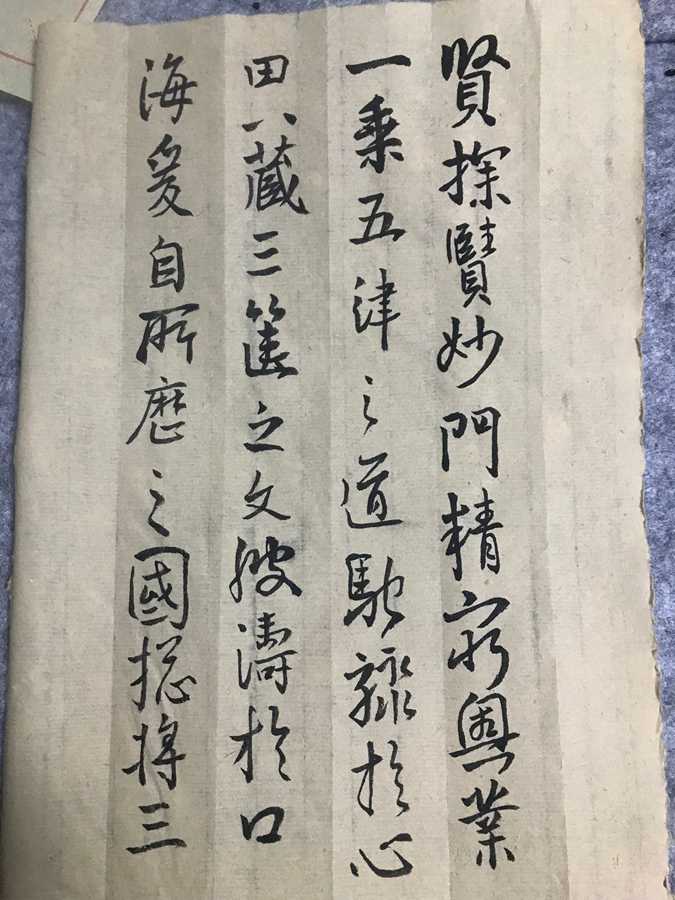 賢探賾妙門精窮奧業
一乘五津之道馳驟於心
田八藏三篋之文波濤於口
海爰自所歷之國揔將三